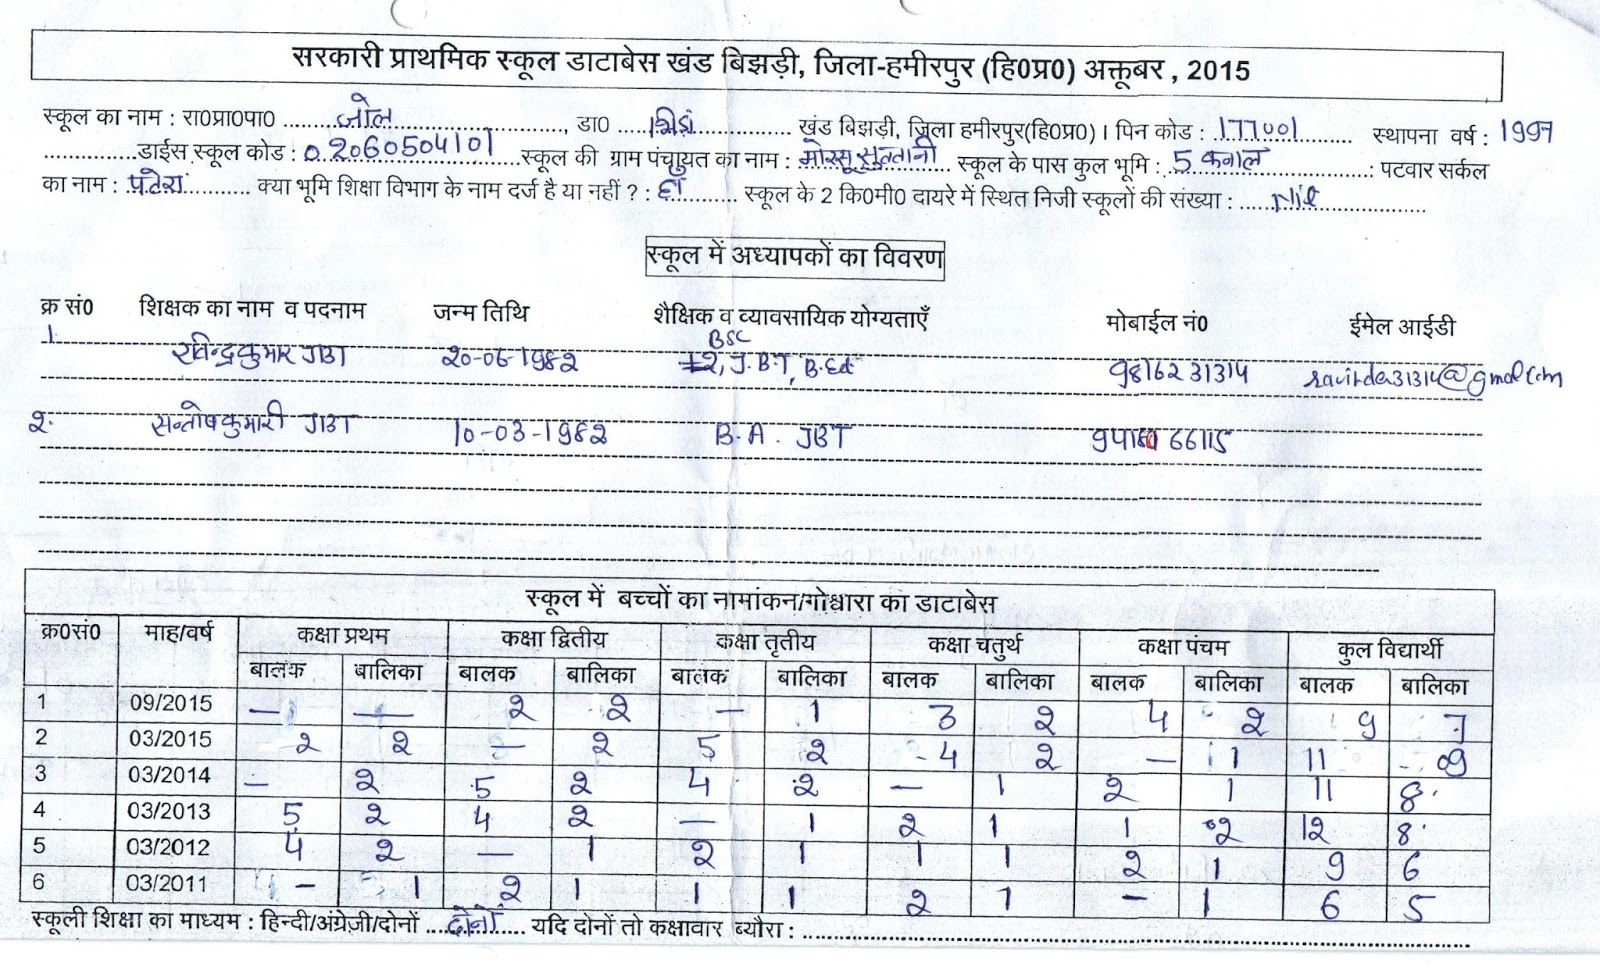 सरकारी प्राथमिक स्कूल डाटाबेस खंड बिझड़ी, जिला-हमीरपुर (हि0प्र0) अक्तूबर , 2015
स्कूल का नाम : रा0प्रा0पा0 ..........जोल.........., डा0 .................... खंड बिझड़ी, जिला हमीरपुर(हि0प्र0) । पिन कोड : 177001 स्थापना वर्ष : 1997
...............डाईस स्कूल कोड : 02060504101 ....स्कूल की ग्राम पंचायत का नाम : मोरसू सुल्तानी स्कूल के पास कुल भूमि : 5 कनाल ..........: पटवार सर्कल
का नाम : पटेरा .......... क्या भूमि शिक्षा विभाग के नाम दर्ज है या नहीं ? : हाँ .......... स्कूल के 2 कि0मी0 दायरे में स्थित निजी स्कूलों की संख्या : ..... Nil ...............
स्कूल में अध्यापकों का विवरण
क्र सं0 शिक्षक का नाम व पदनाम जन्म तिथि शैक्षिक व व्यावसायिक योग्यताएँ मोबाईल नं0 ईमेल आईडी
1. रविन्द्र कुमार JBT 20-06-1982 BSC +2, J.B.T, B.Ed 9816231314 ravinder31314@gmail.com
२. सन्तोष कुमारी JBT 10-03-1982 B.A. JBT
स्कूल में बच्चों का नामांकन/गोश्वारा का डाटाबेस
क्र0सं0 माह/वर्ष कक्षा प्रथम कक्षा द्वितीय कक्षा तृतीय कक्षा चतुर्थ कक्षा पंचम कुल विद्यार्थी
बालक बालिका बालक बालिका बालक बालिका बालक बालिका बालक बालिका बालक बालिका
1 09/2015 — — २ २ — 1 3 २ 4 २ 9 7
2 03/2015 २ २ — २ 5 २ 4 २ — 1 11 09
3 03/2014 — २ 5 २ 4 २ — 1 २ 1 11 8
4 03/2013 5 २ 4 २ — 1 २ 1 1 २ 12 8
5 03/2012 4 २ — 1 २ 1 1 1 २ 1 9 6
6 03/2011 — 1 २ 1 1 1 २ 1 — 1 6 5
स्कूली शिक्षा का माध्यम : हिन्दी/अंग्रेज़ी/दोनों ....दोनों.... यदि दोनों तो कक्षावार ब्यौरा : ....................